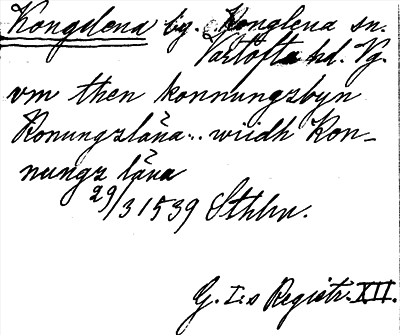 Kongslena by. Konglena sn.
Vartofta hd. Vg.
vm then konnungsbyn
Konungzläna.. wiidh Kon-
nungz läna
29/3 1539 Sthlm.
G. I:s Registr. XII.